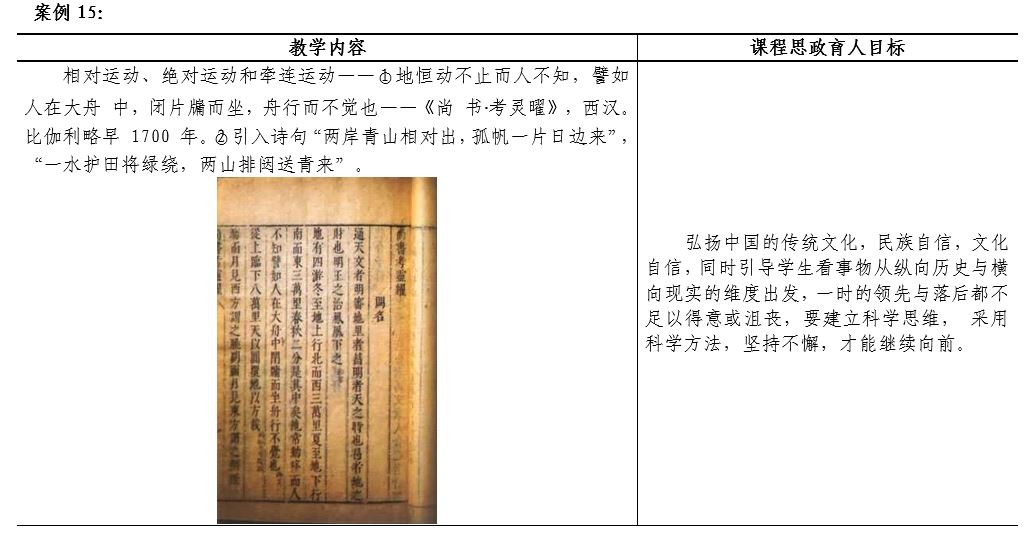 案例 15:
教学内容
课程思政育人目标
相对运动、绝对运动和牵连运动——①地恒动不止而人不知，譬如
人在大舟 中，闭片牖而坐，舟行而不觉也——《尚 书·考灵曜》，西汉。
比伽利略早 1700 年。②引入诗句“两岸青山相对出，孤帆一片日边来”，
“一水护田将绿绕，两山排闼送青来” 。
尚書考靈曜
闕名
通天文者明審地里者昌明者天之時也昌者地之
財也明王之治鳳凰下之
地有四游冬至地上行北而西三萬里夏至地下行
南而東三萬里春秋二分是其中矣地常動不止而人
不知譬如人在大舟中閉牖而坐舟行不覺也
從上臨下八萬里天以圓覆地以方載
而月見西方謂之 而月見東方謂之
弘扬中国的传统文化，民族自信，文化
自信，同时引导学生看事物从纵向历史与横
向现实的维度出发，一时的领先与落后都不
足以得意或沮丧，要建立科学思维， 采用
科学方法，坚持不懈，才能继续向前。